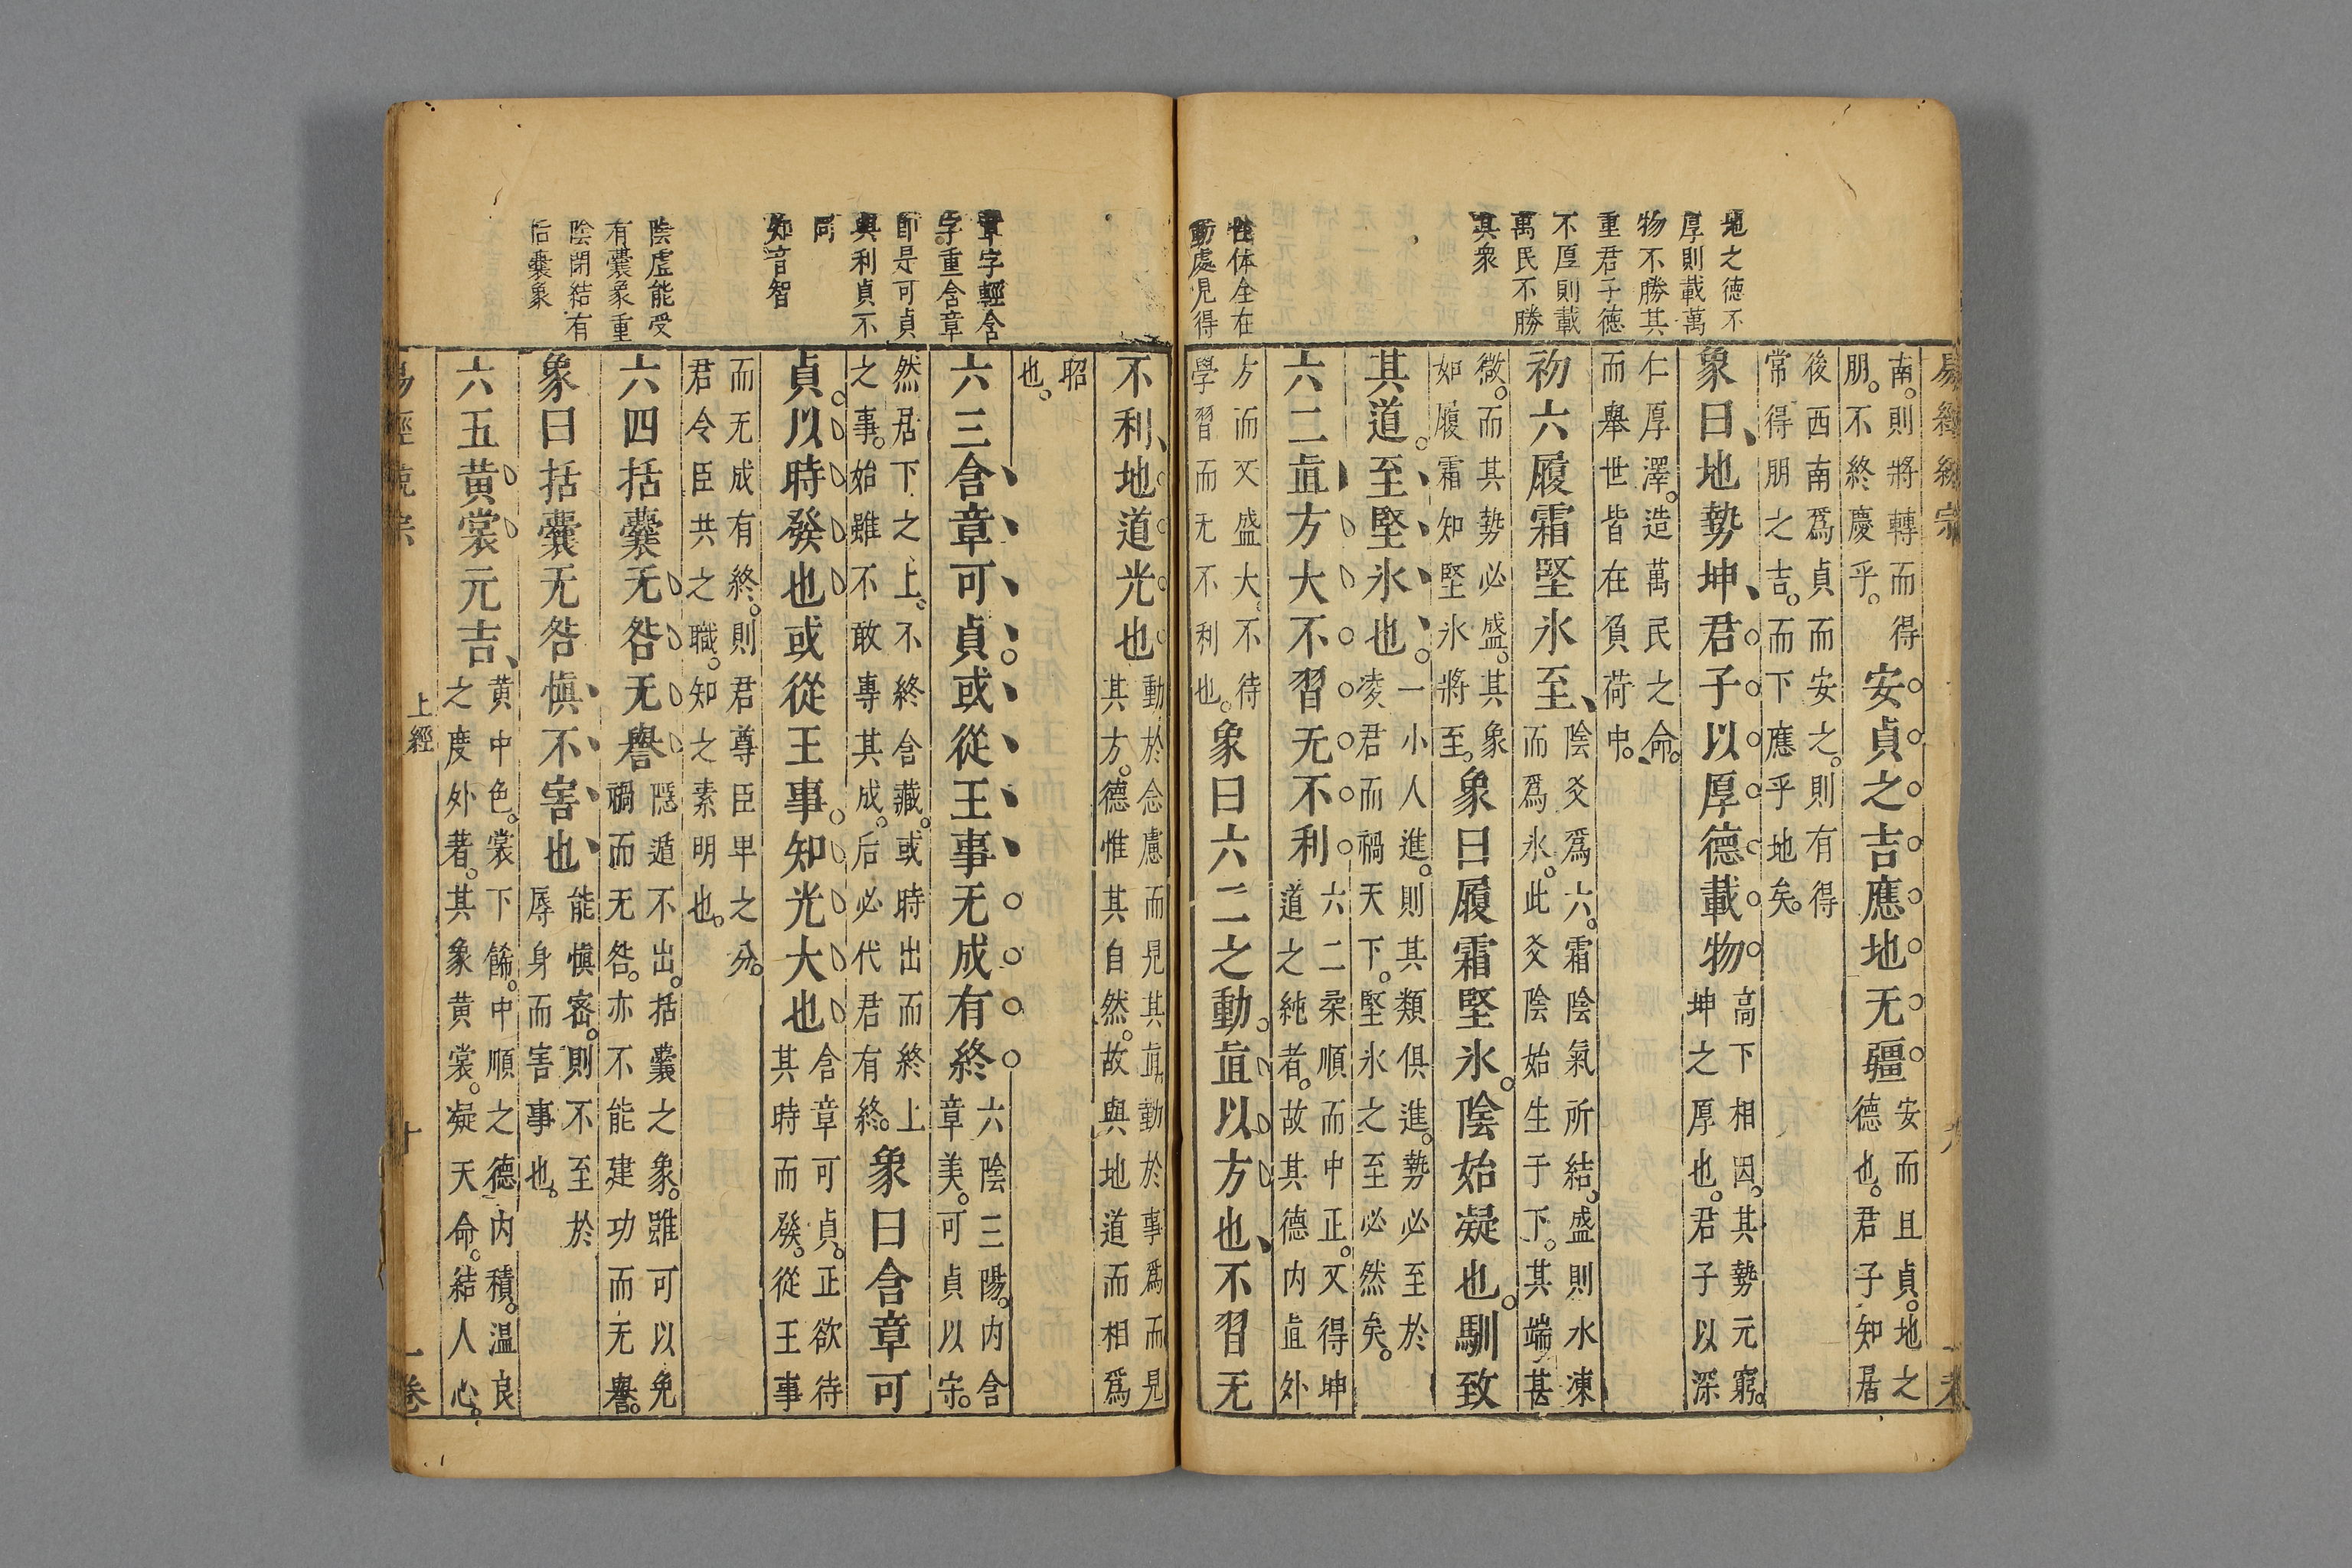 地之德不
厚則載萬
物不勝其
重君子德
不厚則載
萬民不勝
其衆
性体全在
動處見得
南。則將轉而得
朋。不終慶乎。
安貞之吉應地无疆
安而且貞。地之
德也。君子知居
後西南爲貞而安之。則有得
常得朋之吉。而下應乎地矣。
象曰、地勢坤、君子以厚德載物
高下相因。其勢无窮。
坤之厚也。君子以深
仁厚澤。造萬民之命。
而舉世皆在負荷中。
初六履霜堅氷至、
陰爻爲六。霜陰氣所結。盛則水凍
而爲氷。此爻陰始生于下。其端甚
微。而其勢必盛。其象
如履霜知堅氷將至。
象曰履霜堅氷。陰始凝也。馴致
其道。至堅氷也。
一小人進。則其類俱進。勢必至於
凌君而禍天下。堅氷之至必然矣。
六二直方大不習无不利
六二柔順而中正。又得坤
道之純者。故其德内直外
方而又盛大。不待
學習而无不利也。
象曰六二之動。直以方也、不習无
不利、地道光也
動於念慮而見其直。動於事爲而見
其方。德惟其自然。故與地道而相爲
昭
也。
章字輕含
字重含章
即是可貞
與利貞不
同
知音智
陰虛能受
有囊象重
陰閉結有
括囊象
六三含章可貞。或從王事无成有終
六陰三陽。内含
章美。可貞以守。
然居下之上。不終含藏。或時出而終上
之事。始雖不敢專其成。后必代君有終。
象曰含章可
貞。以時發也或從王事。知光大也
含章可貞。正欲待
其時而發。從王事
而无成有終。則君尊臣卑之分。
君令臣共之職。知之素明也。
六四括囊无咎无譽
隱遁不出。括囊之象。雖可以免
禍而无咎。亦不能建功而无譽。
象曰括囊无咎愼不害也
能愼密。則不至於
辱身而害事也。
六五黄裳元吉、
黄中色。裳下餙。中順之德内積。温良
之度外著。其象黄裳。凝天命。結人心。
上經